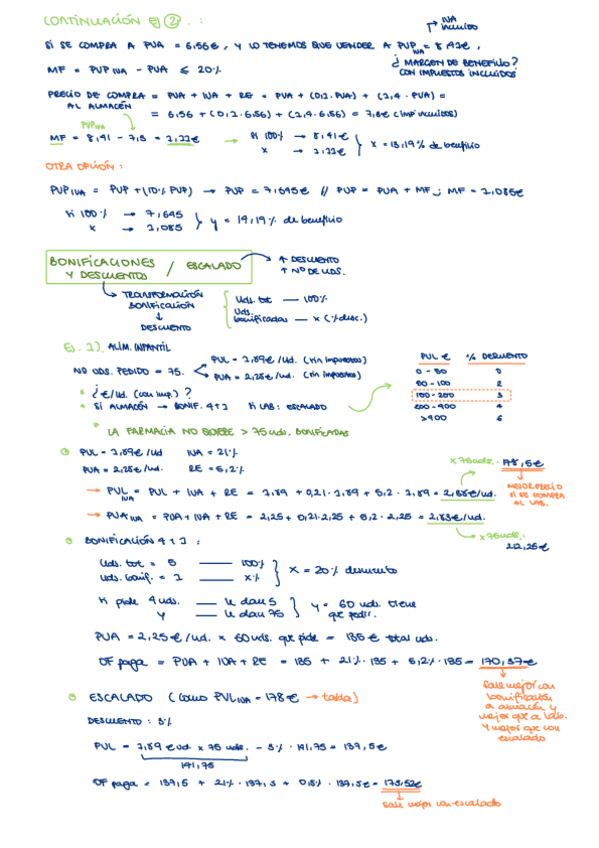 CONTINUACIÓN EJ 2 :
IVA incluido
SI SE COMPRA A PVA = 6,56€, Y LO TENEMOS QUE VENDER A PUP IVA = 8,41€,
¿MARGEN DE BENEFICIO?
CON IMPUESTOS INCLUIDOS
MF = PUP IVA - PUA ≤ 20%
PRECIO DE COMPRA = PUA + IVA + RE = PUA + (0,1. PUA) + (1,4 · PUA) =
AL ALMACÉN
= 6,56 + (0,1 · 6,56) + (1,4 · 6,56) = 7,3€ (imp incluidos)
PUP IVA
MF = 8,41 - 7,3 = 1,11€ → Si 100% → 8,41€
x → 1,11€
x = 13,19% de benefilio
OTRA OPCIÓN :
PUP IVA = PUP + (10% PUP) → PUP = 7,645€ // PUP = PUA + MF ; MF = 1,085€
Si 100% → 7,645
x → 1,085
y = 14,19% de beneficio
BONIFICACIONES Y DESCUENTOS / ESCALADO
↑ DESCUENTO
↑ Nº DE UDS.
TRANSFORMACIÓN
BONIFICACIÓN
↓
DESCUENTO
Uds. tot — 100%
Uds. bonificadas — x (% desc.)
Ej. 1) ALIM. INFANTIL
NO UDS. PEDIDO = 75.
PUL = 1,89€/ud. (sin impuestos)
PUA = 2,25€/ud. (sin impuestos)
* ¿€/ud. (con imp.)?
* SI ALMACÉN → BONIF. 4+1 SI LAB: ESCALADO
* LA FARMACIA NO QUIERE > 75 uds. BONIFICADAS
PUL € % DESCUENTO
0 - 50 0
50 - 100 2
100 - 200 3
200 - 400 4
>400 6
PUL = 1,89€/ud. IVA = 21%
PUA = 2,25€/ud. RE = 5,2%
→ PUL IVA = PUL + IVA + RE = 1,89 + 0,21 · 1,89 + 5,2 · 1,89 = 2,38€/ud.
x 75 uds. 178,5€
MEJOR PRECIO
SI SE COMPRA
AL LAB.
→ PUA IVA = PUA + IVA + RE = 2,25 + 0,21·2,25 + 5,2 · 2,25 = 2,83€/ud.
x 75 uds.:
212,25€
BONIFICACIÓN 4+1 :
Uds. tot = 5 — 100%
uds. bonif. = 1 — x%
x = 20% descuento
Si pide 4 uds. — le dan 5
y — le dan 75
y = 60 uds. tiene
que pedir.
PUA = 2,25€/ud. x 60 uds. que pide = 135€ total uds.
OF paga = PUA + IVA + RE = 135 + 21% · 135 + 5,2% · 135 = 170,37€
Sale mejor con
bonificación
a almacén y
mejor que a lab.
Y mejor que con
escalado
ESCALADO (como PUL IVA = 178€ → tabla)
DESCUENTO : 3%
PUL = 1,89€/ud x 75 uds. - 3% · 141,75 = 137,5€
141,75
OF paga = 137,5 + 21% · 137,5 + 0,5% · 137,5€ = 173,52€
Sale mejor con escalado